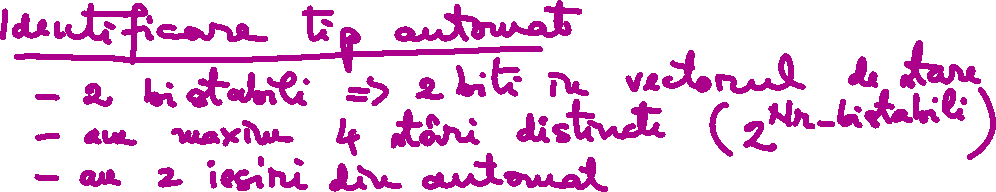 Identificare tip automat
- 2 bistabili => 2 biti in vectorul de stare
- am maxim 4 stări distincte (2^Nr-bistabili)
- am 2 iesiri din automat